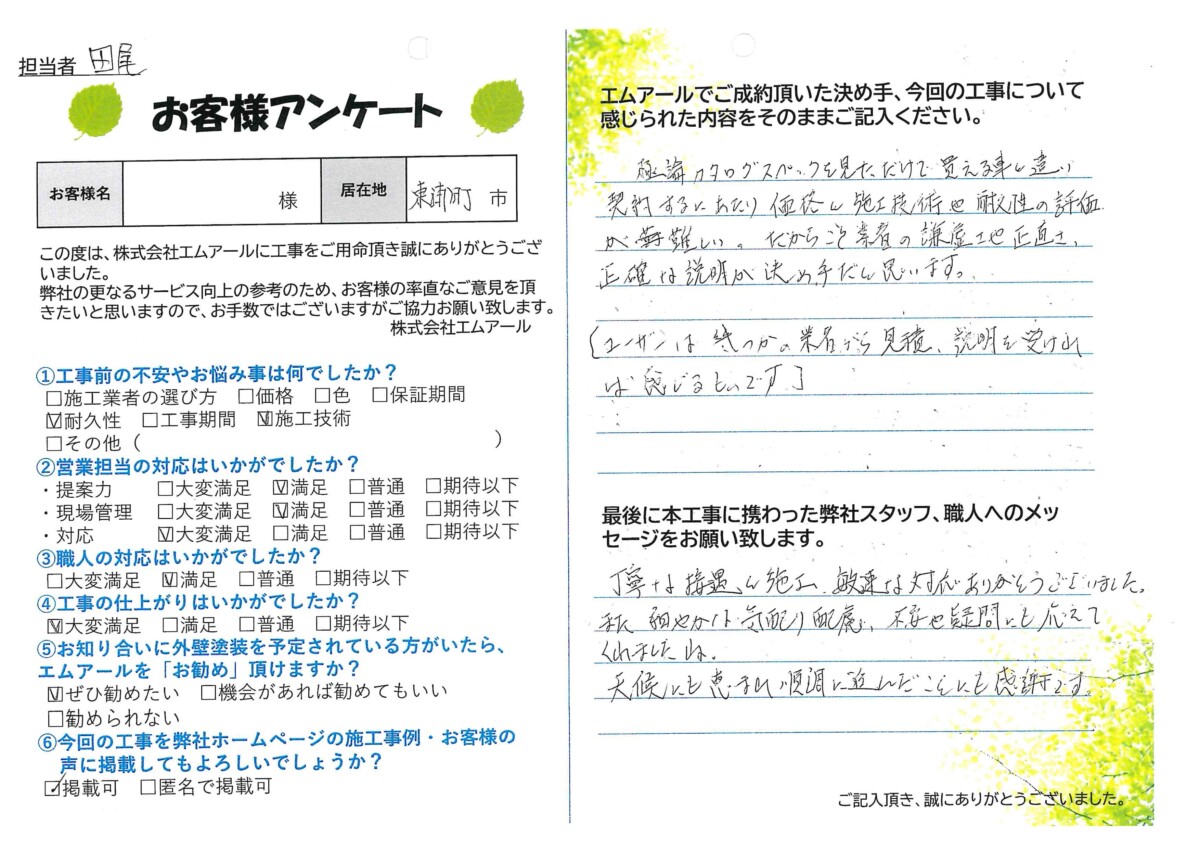 担当者 田尾
お客様アンケート
お客様名 様 居在地 東浦町 市
この度は、株式会社エムアールに工事をご用命頂き誠にありがとうござ
いました。
弊社の更なるサービス向上の参考のため、お客様の率直なご意見を頂
きたいと思いますので、お手数ではございますがご協力お願い致します。
株式会社エムアール
①工事前の不安やお悩み事は何でしたか？
□施工業者の選び方 □価格 □色 □保証期間
☑耐久性 □工事期間 ☑施工技術
□その他（ ）
②営業担当の対応はいかがでしたか？
・提案力 □大変満足 ☑満足 □普通 □期待以下
・現場管理 □大変満足 ☑満足 □普通 □期待以下
・対応 ☑大変満足 □満足 □普通 □期待以下
③職人の対応はいかがでしたか？
□大変満足 ☑満足 □普通 □期待以下
④工事の仕上がりはいかがでしたか？
☑大変満足 □満足 □普通 □期待以下
⑤お知り合いに外壁塗装を予定されている方がいたら、
エムアールを「お勧め」頂けますか？
☑ぜひ勧めたい □機会があれば勧めてもいい
□勧められない
⑥今回の工事を弊社ホームページの施工事例・お客様の
声に掲載してもよろしいでしょうか？
☑掲載可 □匿名で掲載可
エムアールでご成約頂いた決め手、今回の工事について
感じられた内容をそのままご記入ください。
極論カタログスペックを見ただけで買える車と違い
契約するにあたり価格と施工技術や耐久性の評価
が難しい。だからこそ業者の謙虚さや正直さ、
正確な説明が決め手だと思います。
(ユーザーは幾つかの業者から見積、説明を受けれ
ば感じるものです)
最後に本工事に携わった弊社スタッフ、職人へのメッ
セージをお願い致します。
丁寧な接遇と施工、敏速な対応ありがとうございました。
細やかな気配り配慮、不安や疑問にも応えて
くれましたね。
天候にも恵まれ順調に進んだことにも感謝です。
ご記入頂き、誠にありがとうございました。